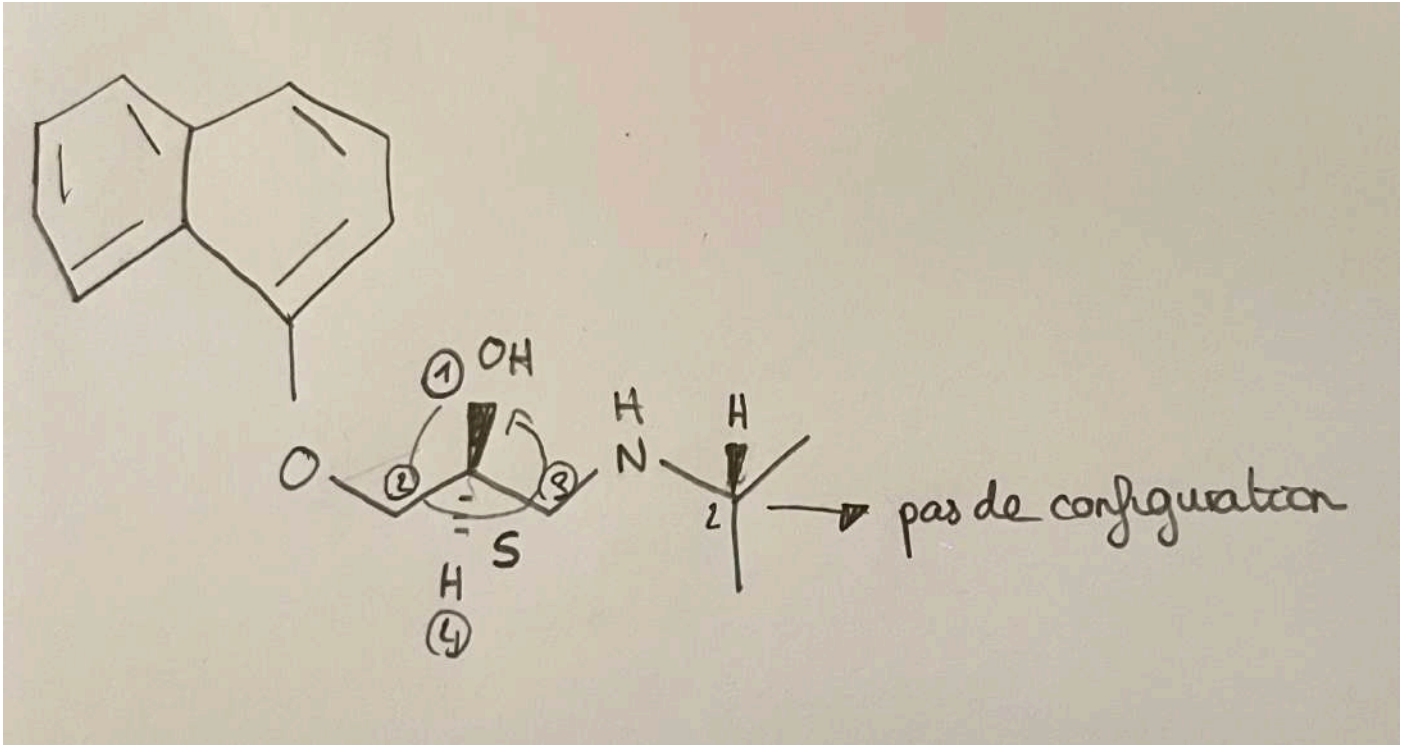 ① OH
H
H
N
O
②
③
2
pas de configuration
S
H
④